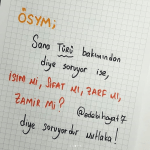 ÖSYM;
Sana TÜRÜ bakımından
diye soruyor ise,
İSİM Mİ, SIFAT MI, ZARF MI,
ZAMİR Mİ?
@edebihayat17
diye soruyordur mutlaka!